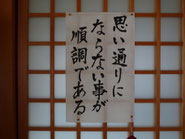 思い通りに
ならない事が
順調である